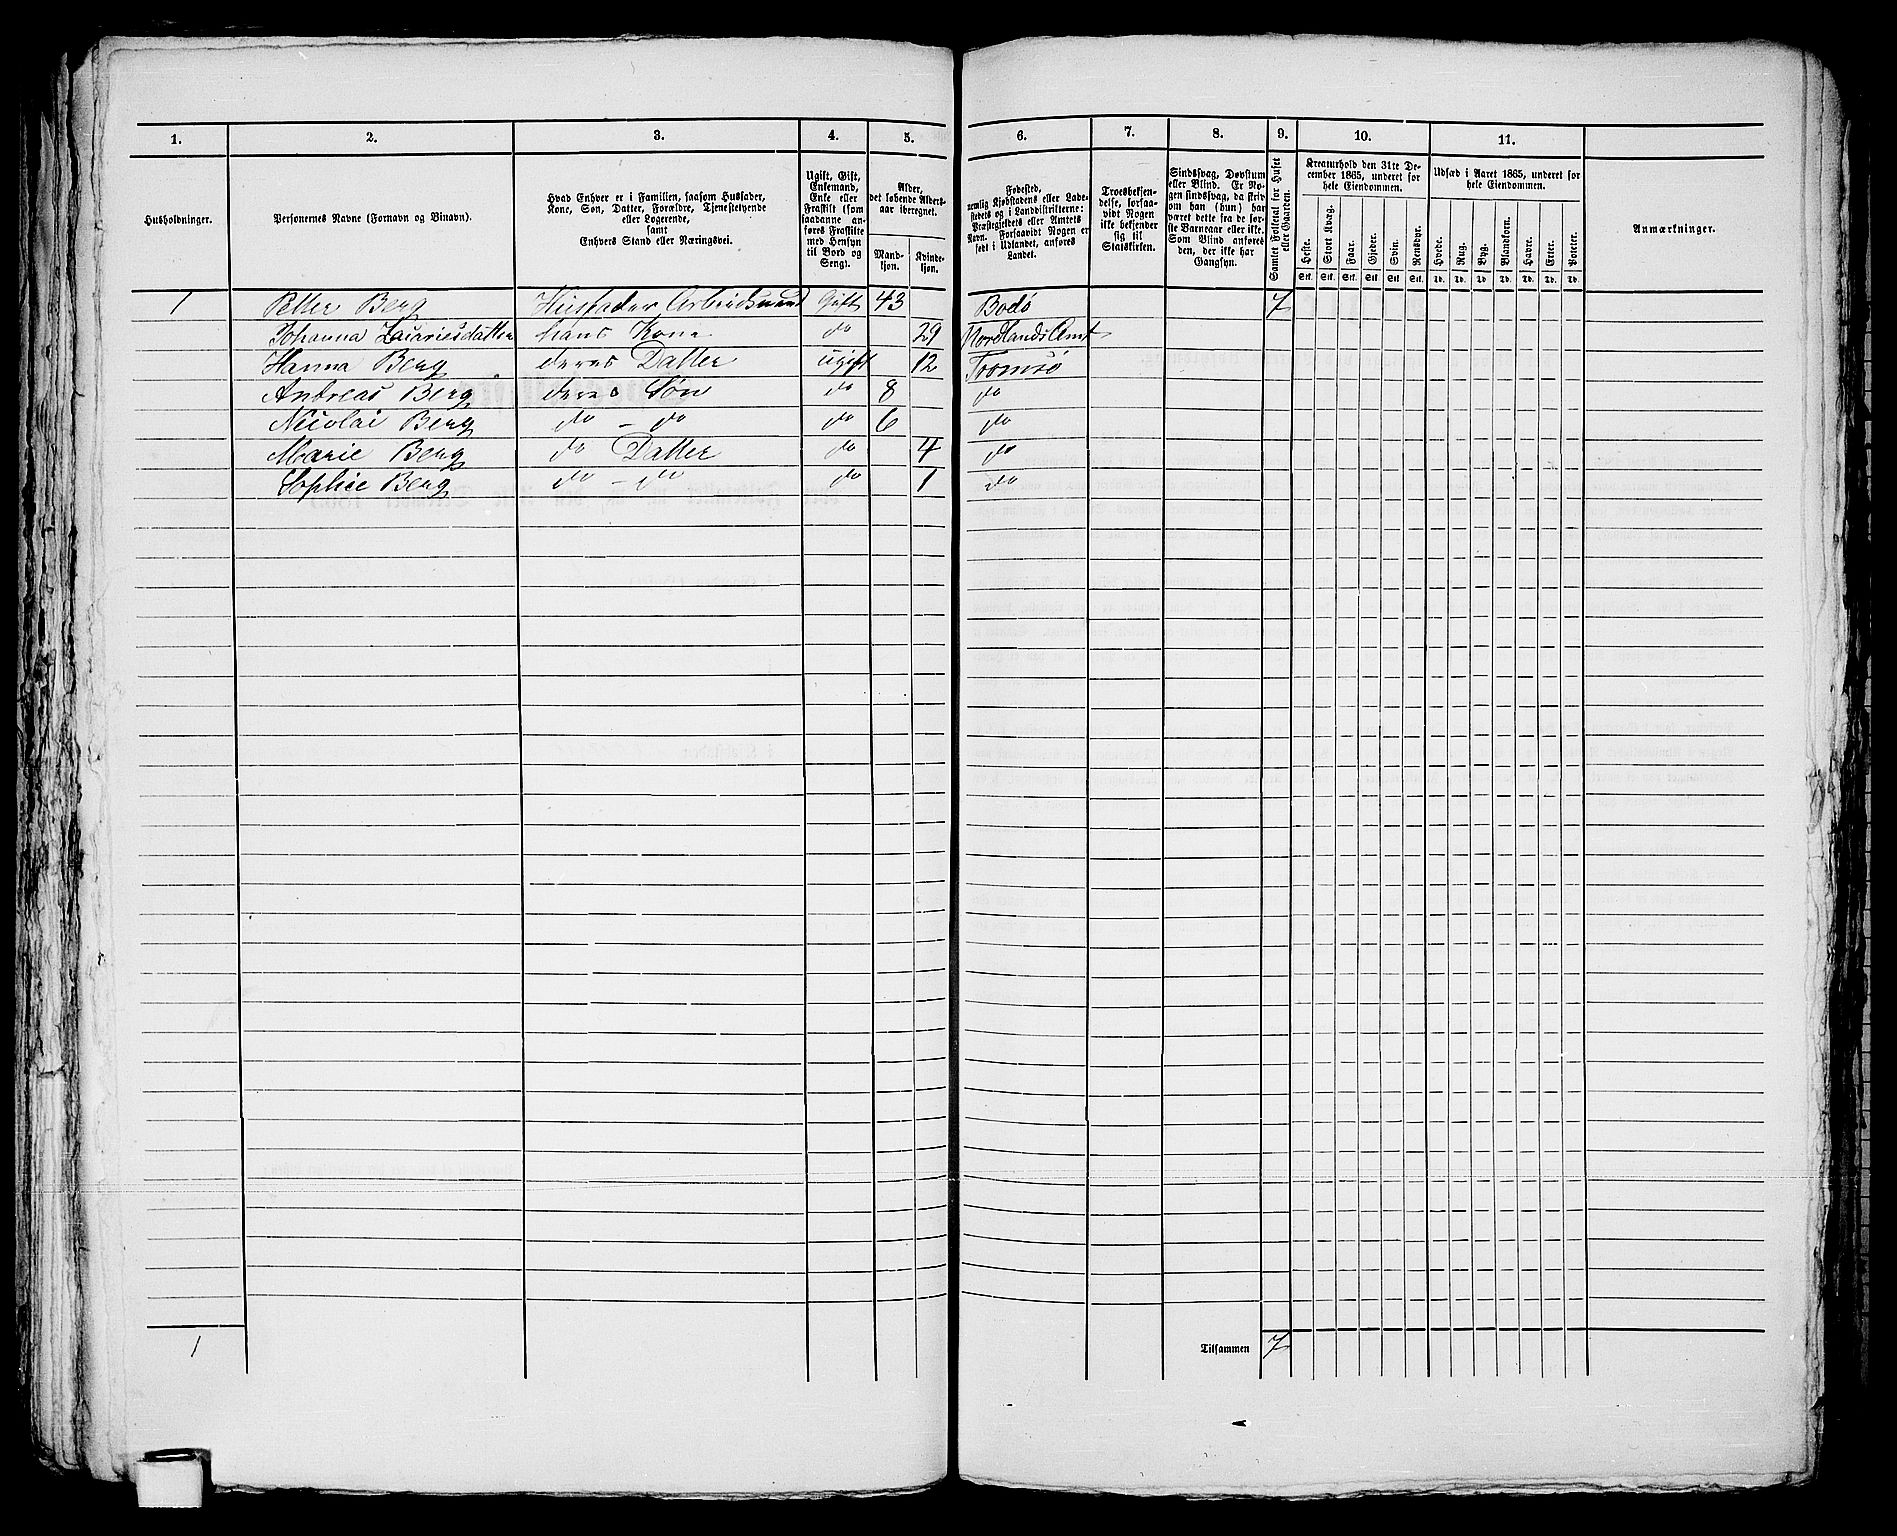 1. 2. 3. 4. 5. 6. 7. 8. 9. 10. 11.
Husholdninger.
Personernes Navne (Fornavn og Binavn).
Hvad Enhver er i Familien, saasom Husfader,
Kone, Søn, Datter, Forældre, Tjenestetyende
eller Logerende,
samt
Enhvers Stand eller Næringsvei.
Ugift, Gift,
Enkemand,
Enke eller
Fraskilt (som
saadanne an-
føres Fraskilte
med Hensyn
til Bord og
Seng).
Alder,
det løbende Alders-
aar iberegnet.
Mand-
kjøn.
Kvinde-
kjøn.
Fødested,
nemlig Kjøbstadens eller Lade-
stedets og i Landdistrikterne:
Præstegjeldets eller Amtets
Navn. Forsaavidt Nogen er
født i Udlandet, anføres
Landet.
Troesbekjen-
delse, forsaa-
vidt Nogen
ikke bekjender
sig til
Statskirken.
Sindssvag, Døvstum
eller Blind. Er No-
gen sindssvag, da skriv
om han (hun) har
været dette fra de før-
ste Barneaar eller ikke.
Som Blind anføres
den, der ikke har
Gangsyn.
Samlet Folketal for Huset
eller Gaarden.
Kreaturhold den 31te De-
cember 1865, underet for
hele Eiendommen.
Heste. Stort Kvæg. Faar. Gjeder. Svin. Rensdyr.
Stk. Stk. Stk. Stk. Stk. Stk.
Udsæd i Aaret 1865, underet for
hele Eiendommen.
Hvede. Rug. Byg. Blandkorn. Havre. Erter. Poteter.
Td. Td. Td. Td. Td. Td. Td.
Anmærkninger.
1 Petter Berg Husfader, Arbeidsmand Gift 43 Bodø 7
Johanna Zacariesdatter hans Kone do 29 Nordlands Amt
Hanna Berg deres Datter ugift 12 Tromsø
Andreas Berg deres Søn do 8 do
Nicolai Berg do - do do 6 do
Marie Berg do Datter do 4 do
Sophie Berg do - do do 1 do
1 Tilsammen 7